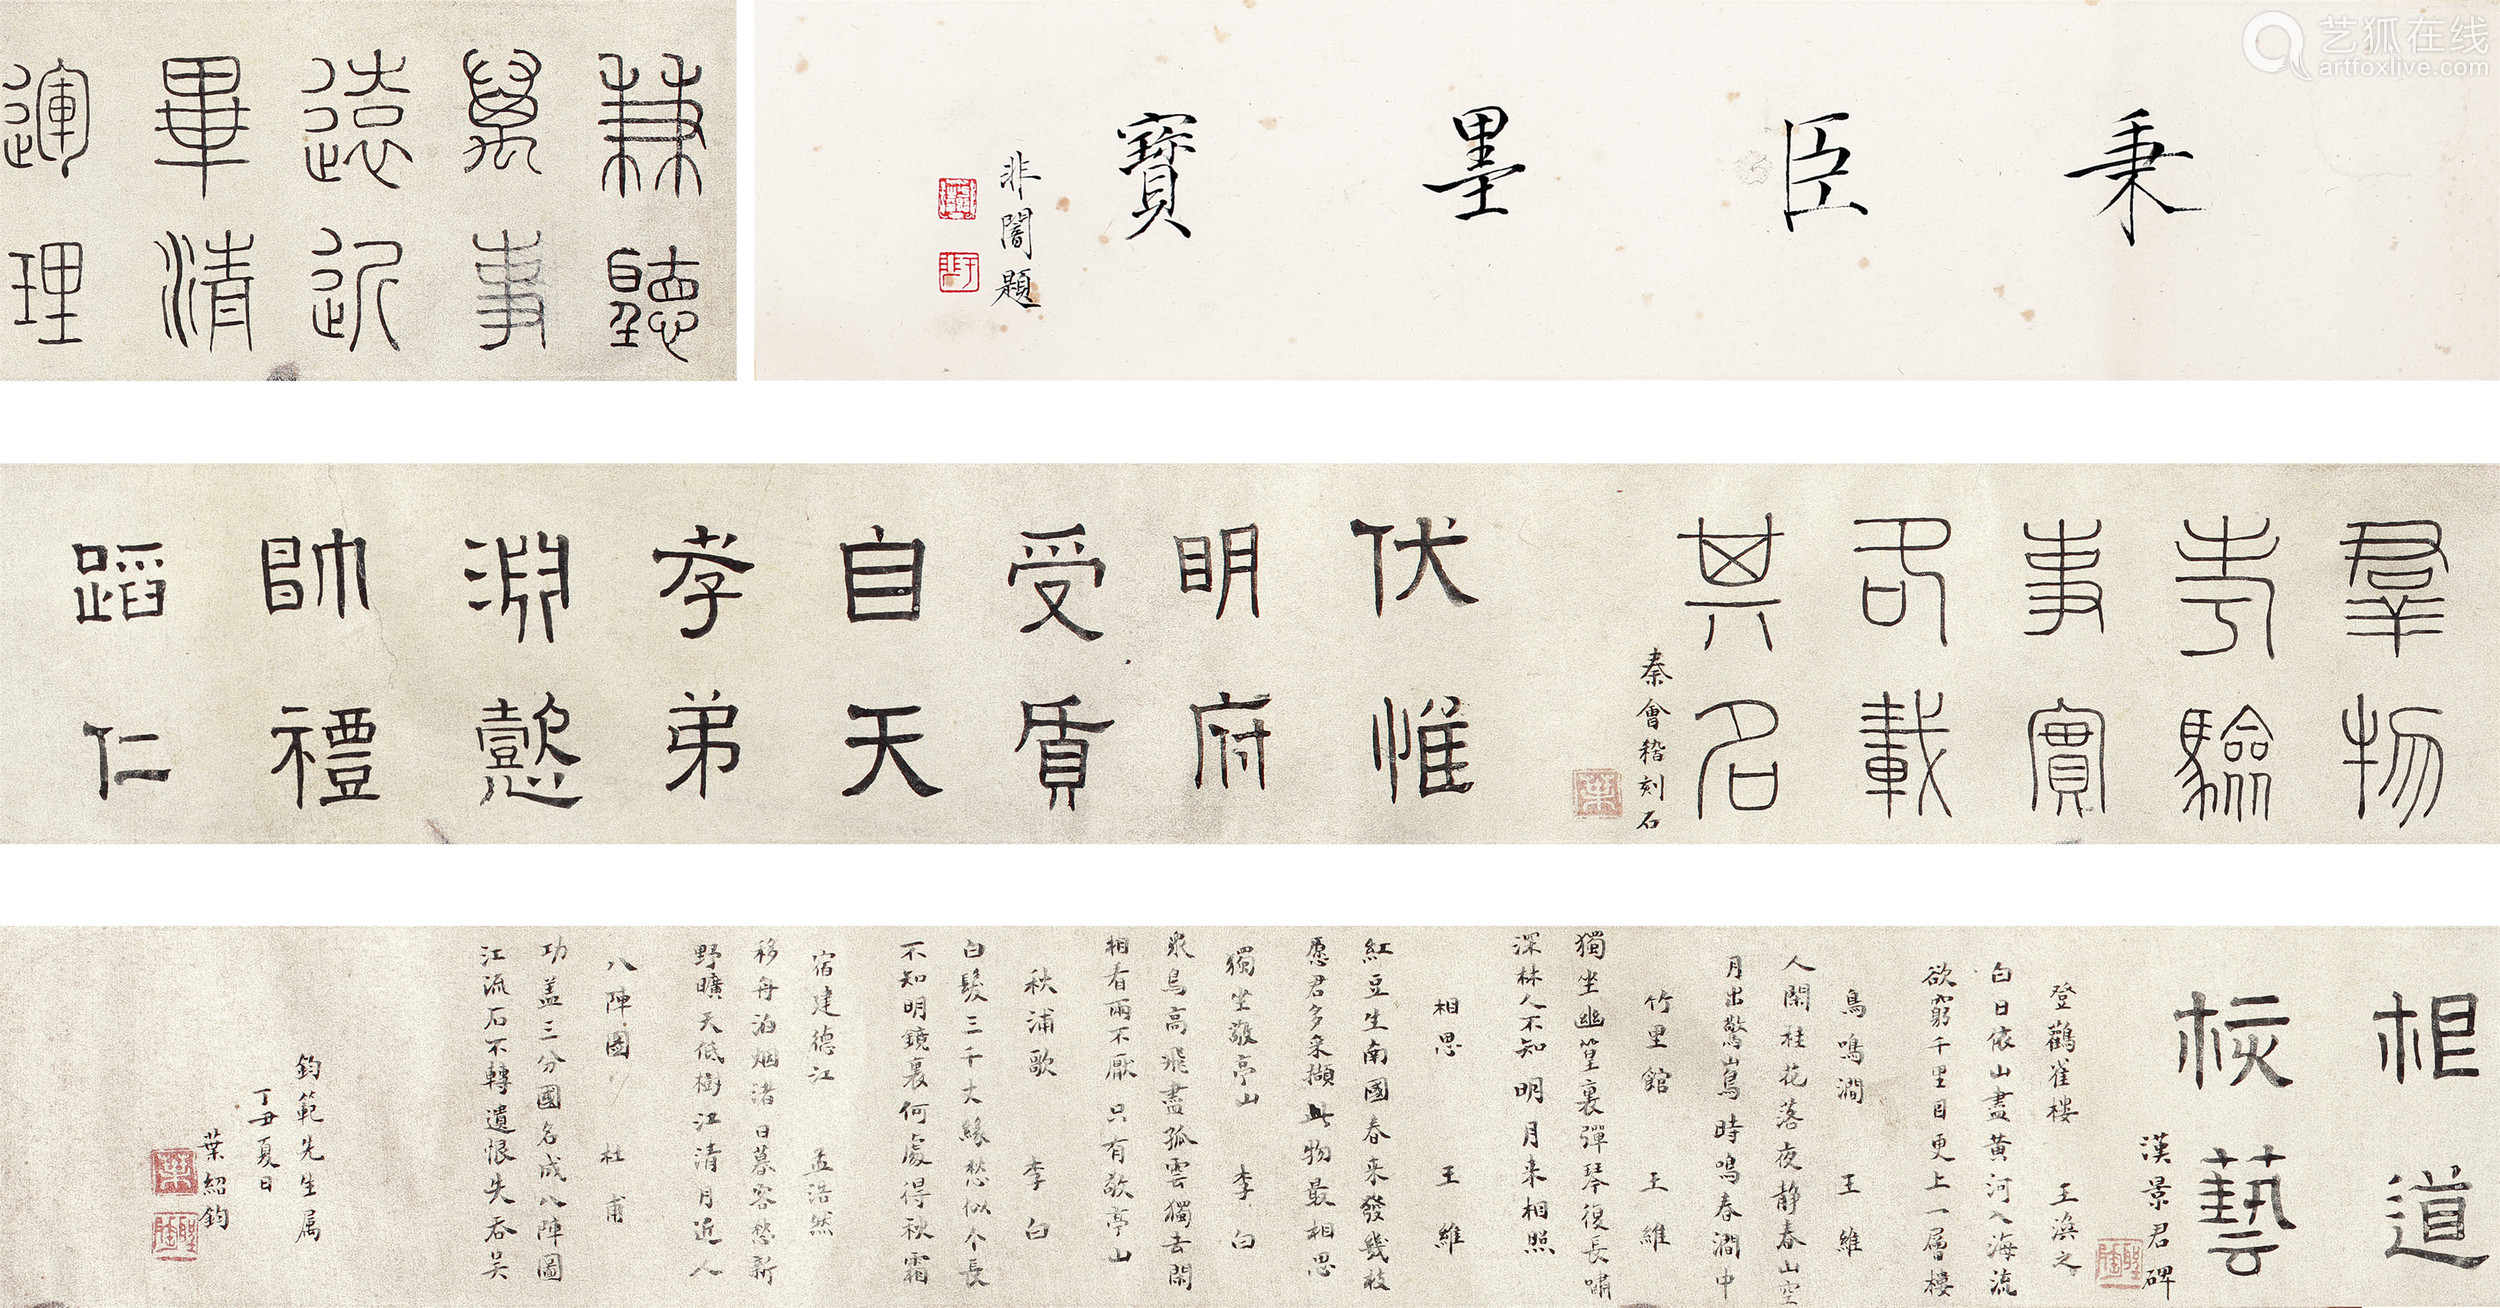 艺狐在线
artfoxlive.com
秉臣墨寶
非闇題
兼聽
萬事
遠近
畢清
運理
羣物
考驗
事實
各載
其名
秦會稽刻石
伏惟
明府
受質
自天
孝弟
淵懿
帥禮
蹈仁
根道
核藝
漢景君碑
登鸛雀樓 王渙之
白日依山盡黄河入海流
欲窮千里目更上一層樓
鳥鳴澗 王維
人閑桂花落夜静春山空
月出驚山鳥時鳴春澗中
竹里館 王維
獨坐幽篁裏彈琴復長嘯
深林人不知明月来相照
相思 王維
紅豆生南國春来發幾枝
愿君多采擷此物最相思
獨坐敬亭山 李白
衆鳥高飛盡孤雲獨去閑
相看兩不厭只有敬亭山
秋浦歌 李白
白髮三千丈緣愁似个長
不知明鏡裏何處得秋霜
宿建德江 孟浩然
移舟泊烟渚日暮客愁新
野曠天低樹江清月近人
八陣圖 杜甫
功盖三分國名成八陣圖
江流石不轉遺恨失吞吴
鈞範先生属
丁丑夏日
葉紹鈞